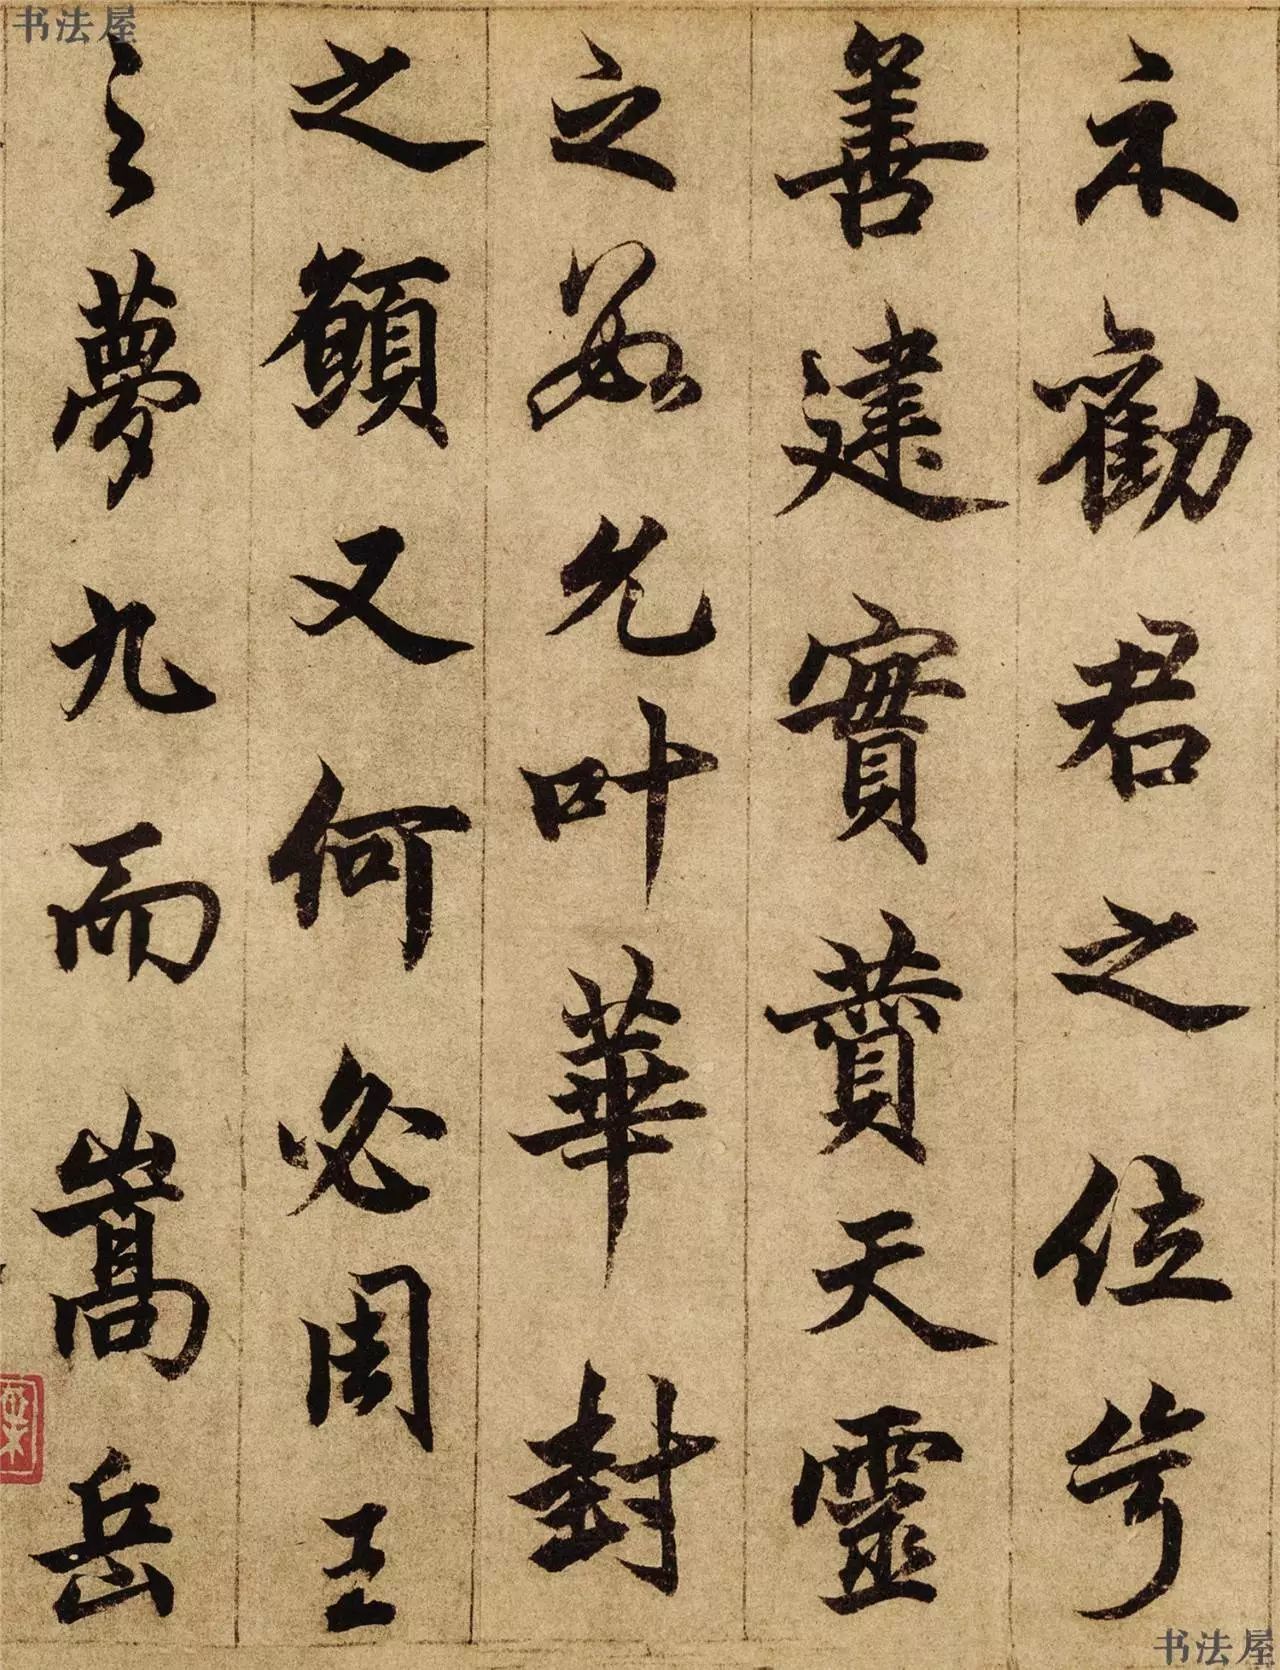 书法屋
示勸君之位
善建實賁天靈
之允叶華封
之願又何必周王
之夢九而嵩岳
书法屋